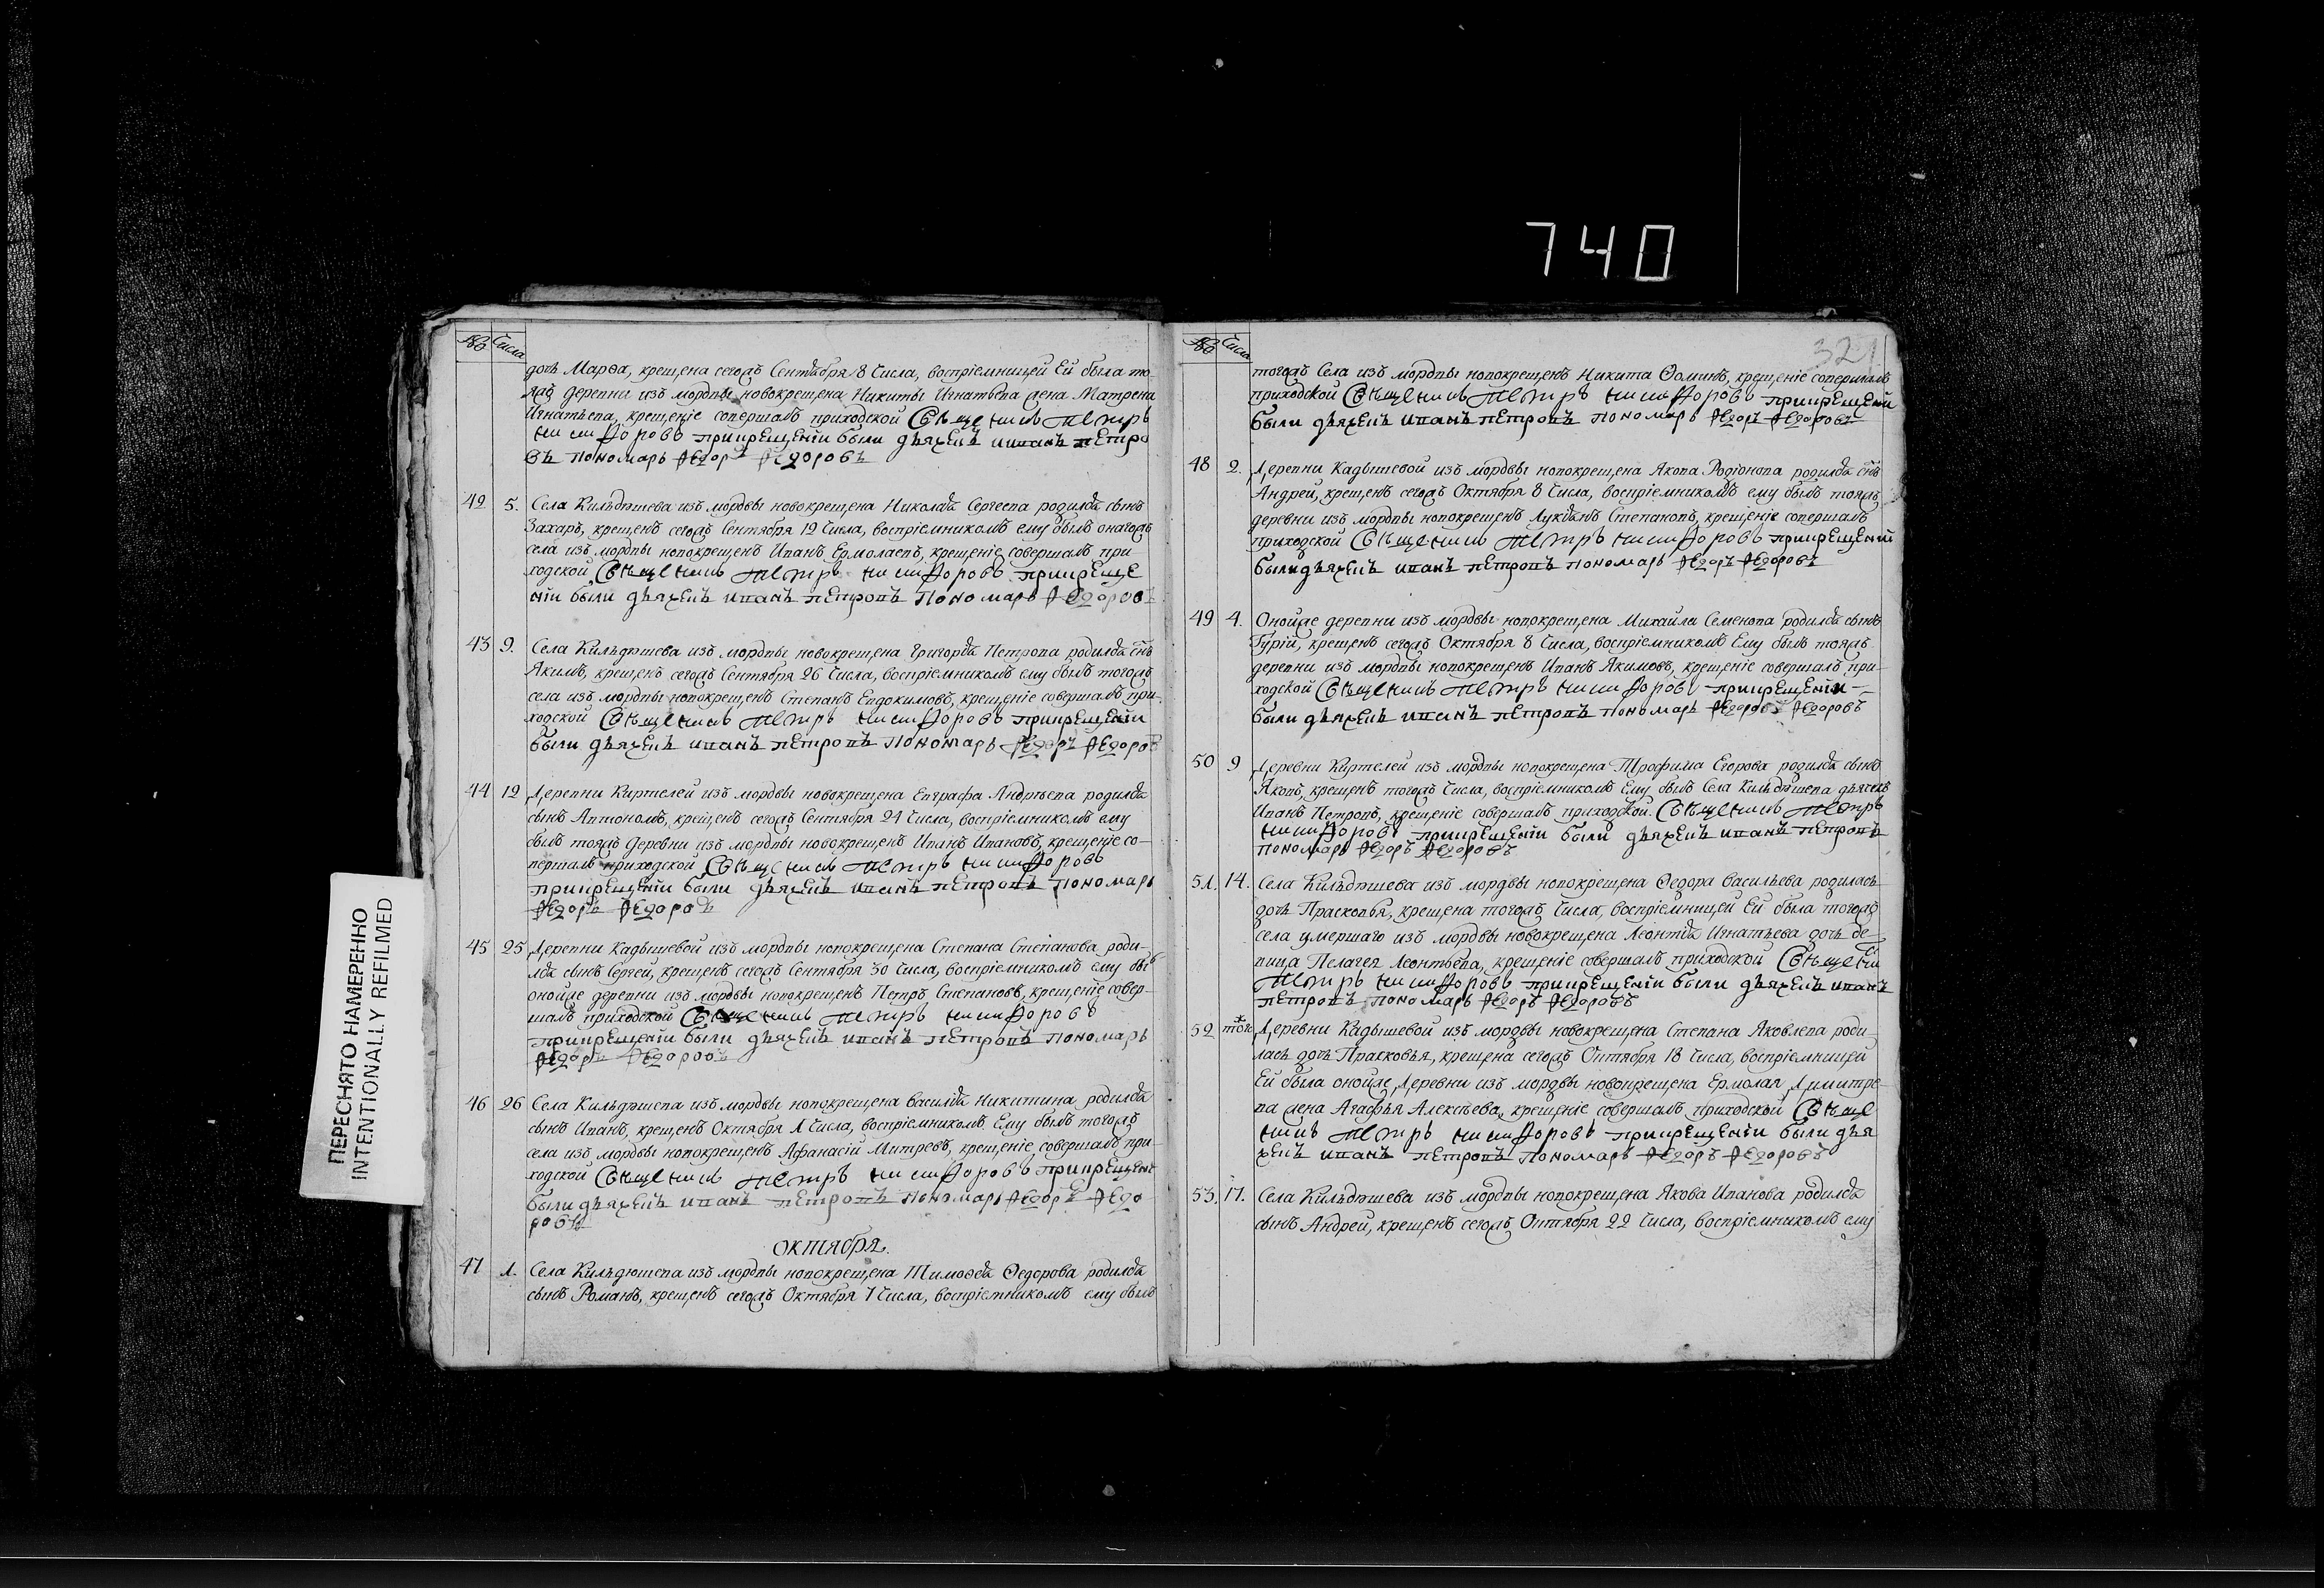 740
321
№ Числа
дочь Марѳа, крещена сегожъ Сентября 8 Числа, воспріемницей Ей была то
яжъ деревни изъ мордвы новокрещена Никиты Игнатьева жена Матрена
Игнатьева, крещеніе совершалъ приходской Свѣщенникъ Петръ
Никифоровъ прикрещеніи были дьячекъ иванъ петро
въ пономарь Ѳедоръ Ѳедоровъ
42 5. Села Кильдюшева изъ мордвы новокрещена Николая Сергеева родился сынъ
Захаръ, крещенъ сегожъ Сентября 12 Числа, воспріемникомъ ему былъ оногожъ
села изъ мордвы новокрещенъ Иванъ Ермолаевъ, крещеніе совершалъ при-
ходской Свѣщенникъ Петръ Никифоровъ прикреще
ніи были дьячекъ иванъ петровъ пономарь Ѳедоровъ
43 9. Села Кильдюшева изъ мордвы новокрещена Григорья Петрова родился снъ
Якимъ, крещенъ сегожъ Сентября 26 Числа, воспріемникомъ ему былъ тогожъ
села изъ мордвы новокрещенъ Степанъ Евдокимовъ, крещеніе совершалъ при-
ходской Свѣщенникъ Петръ Никифоровъ прикрещеніи
были дьячекъ иванъ петровъ пономарь Ѳедоръ Ѳедоровъ
44 12 Деревни Киртелей изъ мордвы новокрещена Евграфа Андреева родился
сынъ Автономъ, крещенъ сегожъ Сентября 21 Числа, воспріемникомъ ему
былъ тояжъ Деревни изъ мордвы новокрещенъ Иванъ Ивановъ, крещеніе со-
вершалъ приходской Свѣщенникъ Петръ Никифоровъ
прикрещеніи были дьячекъ иванъ петровъ пономарь
Ѳедоръ Ѳедоровъ
45 25 Деревни Кадышевой изъ мордвы новокрещена Степана Степанова роди-
лся сынъ Сергей, крещенъ сегожъ Сентября 30 Числа, воспріемникомъ ему былъ
онойже деревни изъ мордвы новокрещенъ Петръ Степановъ, крещеніе совер-
шалъ приходской Свѣщенникъ Петръ Никифоровъ
прикрещеніи были дьячекъ иванъ петровъ пономарь
Ѳедоръ Ѳедоровъ
46 26 Села Кильдюшева изъ мордвы новокрещена Василья Никитина родился
сынъ Иванъ, крещенъ Октября 1 Числа, воспріемникомъ Ему былъ тогожъ
села изъ мордвы новокрещенъ Афанасій Митревъ, крещеніе совершалъ при-
ходской Свѣщенникъ Петръ Никифоровъ прикрещені
были дьячекъ иванъ петровъ пономарь Ѳедоръ Ѳедо
ровъ
ОКТЯБРЯ.
47 1. Села Кильдюшева изъ мордвы новокрещена Тимоѳея Ѳедорова родился
сынъ Романъ, крещенъ сегожъ Октября 7 Числа, воспріемникомъ ему былъ
№ Числа
тогожъ Села изъ мордвы новокрещенъ Никита Ѳоминъ, крещеніе совершалъ
приходской Свѣщенникъ Петръ Никифоровъ прикрещеніи
были дьячекъ иванъ петровъ пономарь Ѳедоръ Ѳедоровъ
48 2. Деревни Кадышевой изъ мордвы новокрещена Якова Родіонова родился снъ
Андрей, крещенъ сегожъ Октября 8 Числа, воспріемникомъ ему былъ тояжъ
деревни изъ мордвы новокрещенъ Лукьянъ Степановъ, крещеніе совершалъ
приходской Свѣщенникъ Петръ Никифоровъ прикрещеніи
были дьячекъ иванъ петровъ пономарь Ѳедоръ Ѳедоровъ
49 4. Онойже деревни изъ мордвы новокрещена Михайла Семенова родился сынъ
Гурій, крещенъ сегожъ Октября 8 Числа, воспріемникомъ Ему былъ тояжъ
деревни изъ мордвы новокрещенъ Иванъ Якимовъ, крещеніе совершалъ при-
ходской Свѣщенникъ Петръ Никифоровъ прикрещеніи
были дьячекъ иванъ петровъ пономарь Ѳедоровъ Ѳедоровъ
50 9 Деревни Киртелей изъ мордвы новокрещена Трофима Егорова родился сынъ
Яковъ, крещенъ тогожъ Числа, воспріемникомъ Ему былъ Села Кильдюшева дьячекъ
Иванъ Петровъ, крещеніе совершалъ приходской Свѣщенникъ Петръ
Никифоровъ прикрещеніи были дьячекъ иванъ петровъ
пономарь Ѳедоръ Ѳедоровъ
51. 14. Села Кильдюшева изъ мордвы новокрещена Ѳедора Васильева родилась
дочь Прасковья, крещена тогожъ Числа, воспріемницей Ей была тогожъ
села умершаго изъ мордвы новокрещена Леонтья Игнатьева дочь де-
вица Пелагея Леонтьева, крещеніе совершалъ приходской Свѣщенни
Петръ Никифоровъ прикрещеніи были дьячекъ иванъ
петровъ пономарь Ѳедоръ Ѳедоровъ
52 тогож Деревни Кадышевой изъ мордвы новокрещена Степана Яковлева роди-
лась дочь Прасковья, крещена сегожъ Октября 18 Числа, воспріемницей
Ей была онойже Деревни изъ мордвы новокрещена Ермолая Димитре-
ва жена Агафья Алексѣева, крещеніе совершалъ приходской Свѣще
нникъ Петръ Никифоровъ прикрещеніи были дья
чекъ иванъ петровъ пономарь Ѳедоръ Ѳедоровъ
53. 17. Села Кильдюшева изъ мордвы новокрещена Якова Иванова родился
сынъ Андрей, крещенъ сегожъ Октября 22 Числа, воспріемникомъ ему
ПЕРЕСНЯТО НАМЕРЕННО
INTENTIONALLY REFILMED